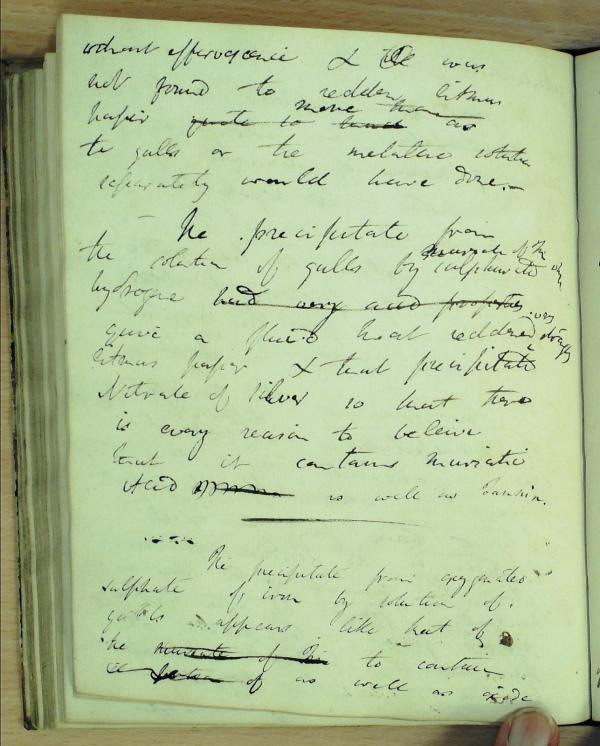 without effervescence & was
not found to redden litmus
more than
paper quite so as
the galls or the metallic solution
separately would have done. —
— The precipitate from
muriate of Tin
the solution of galls by sulphurate
hydrogene had very acid properties very
gave a fluid that reddened strongly
litmus paper & that precipitated
Nitrate of silver so that there
is every reason to beleive
that it contains muriatic
Acid as well as Tannin.
The precipitate from oxygenated
sulphate of iron by solution of
galls appears like that of
the muriate of Tin to contain
of as well as oxide